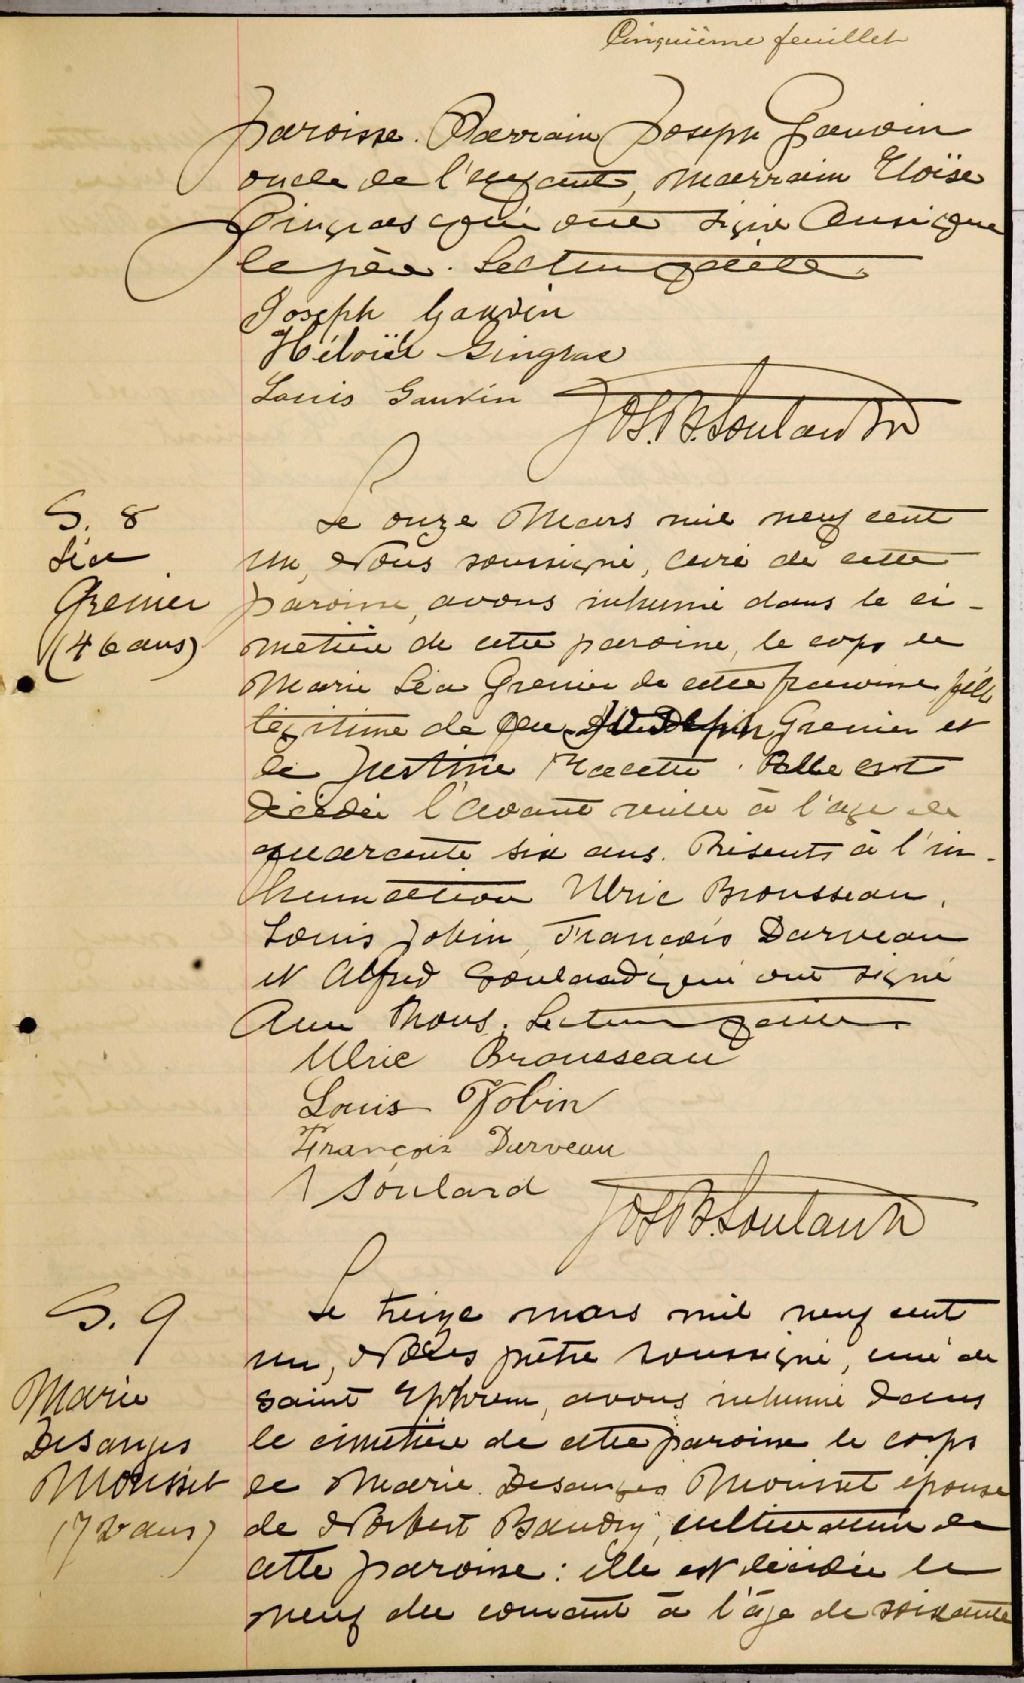 Cinquième feuillet
paroisse. Parrain Joseph Gauvin
oncle de l'enfant, Marraine Eloïse
Gingras qui ont signé ainsi que
le père. Lecture faite.
Joseph Gauvin
Héloïse Gingras
Louis Gauvin
Jos. B. Soulard Ptre
S. 8
Léa
Grenier
(46 ans)
Le onze Mars mil neuf cent
un, Nous soussigné, curé de cette
paroisse, avons inhumé dans le ci-
metière de cette paroisse, le corps de
Marie Léa Grenier de cette paroisse fille
légitime de feu Grenier et
de Justine Racette. Elle est
décédée l'avant veille à l'age de
quarante six ans. Présents à l'in-
humation Ulric Brousseau,
Louis Jobin, François Darveau
et Alfred Soulard qui ont signé
avec Nous. Lecture faite.
Ulric Brousseau
Louis Jobin
François Darveau
A Soulard
Jos B. Soulard Ptre
S. 9
Marie
Desanges
Moisset
(72 ans)
Le treize mars mil neuf cent
un, Nous prêtre soussigné, curé de
Saint Ephrem, avons inhumé dans
le cimetière de cette paroisse le corps
de Marie Desanges Moisset épouse
de Norbert Baudry, cultivateur de
cette paroisse: elle est décédée le
neuf du courant à l'âge de soixante